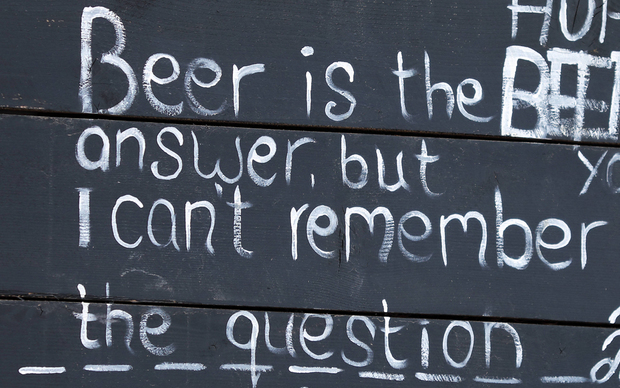 Beer is the
answer, but
I can't remember
the question